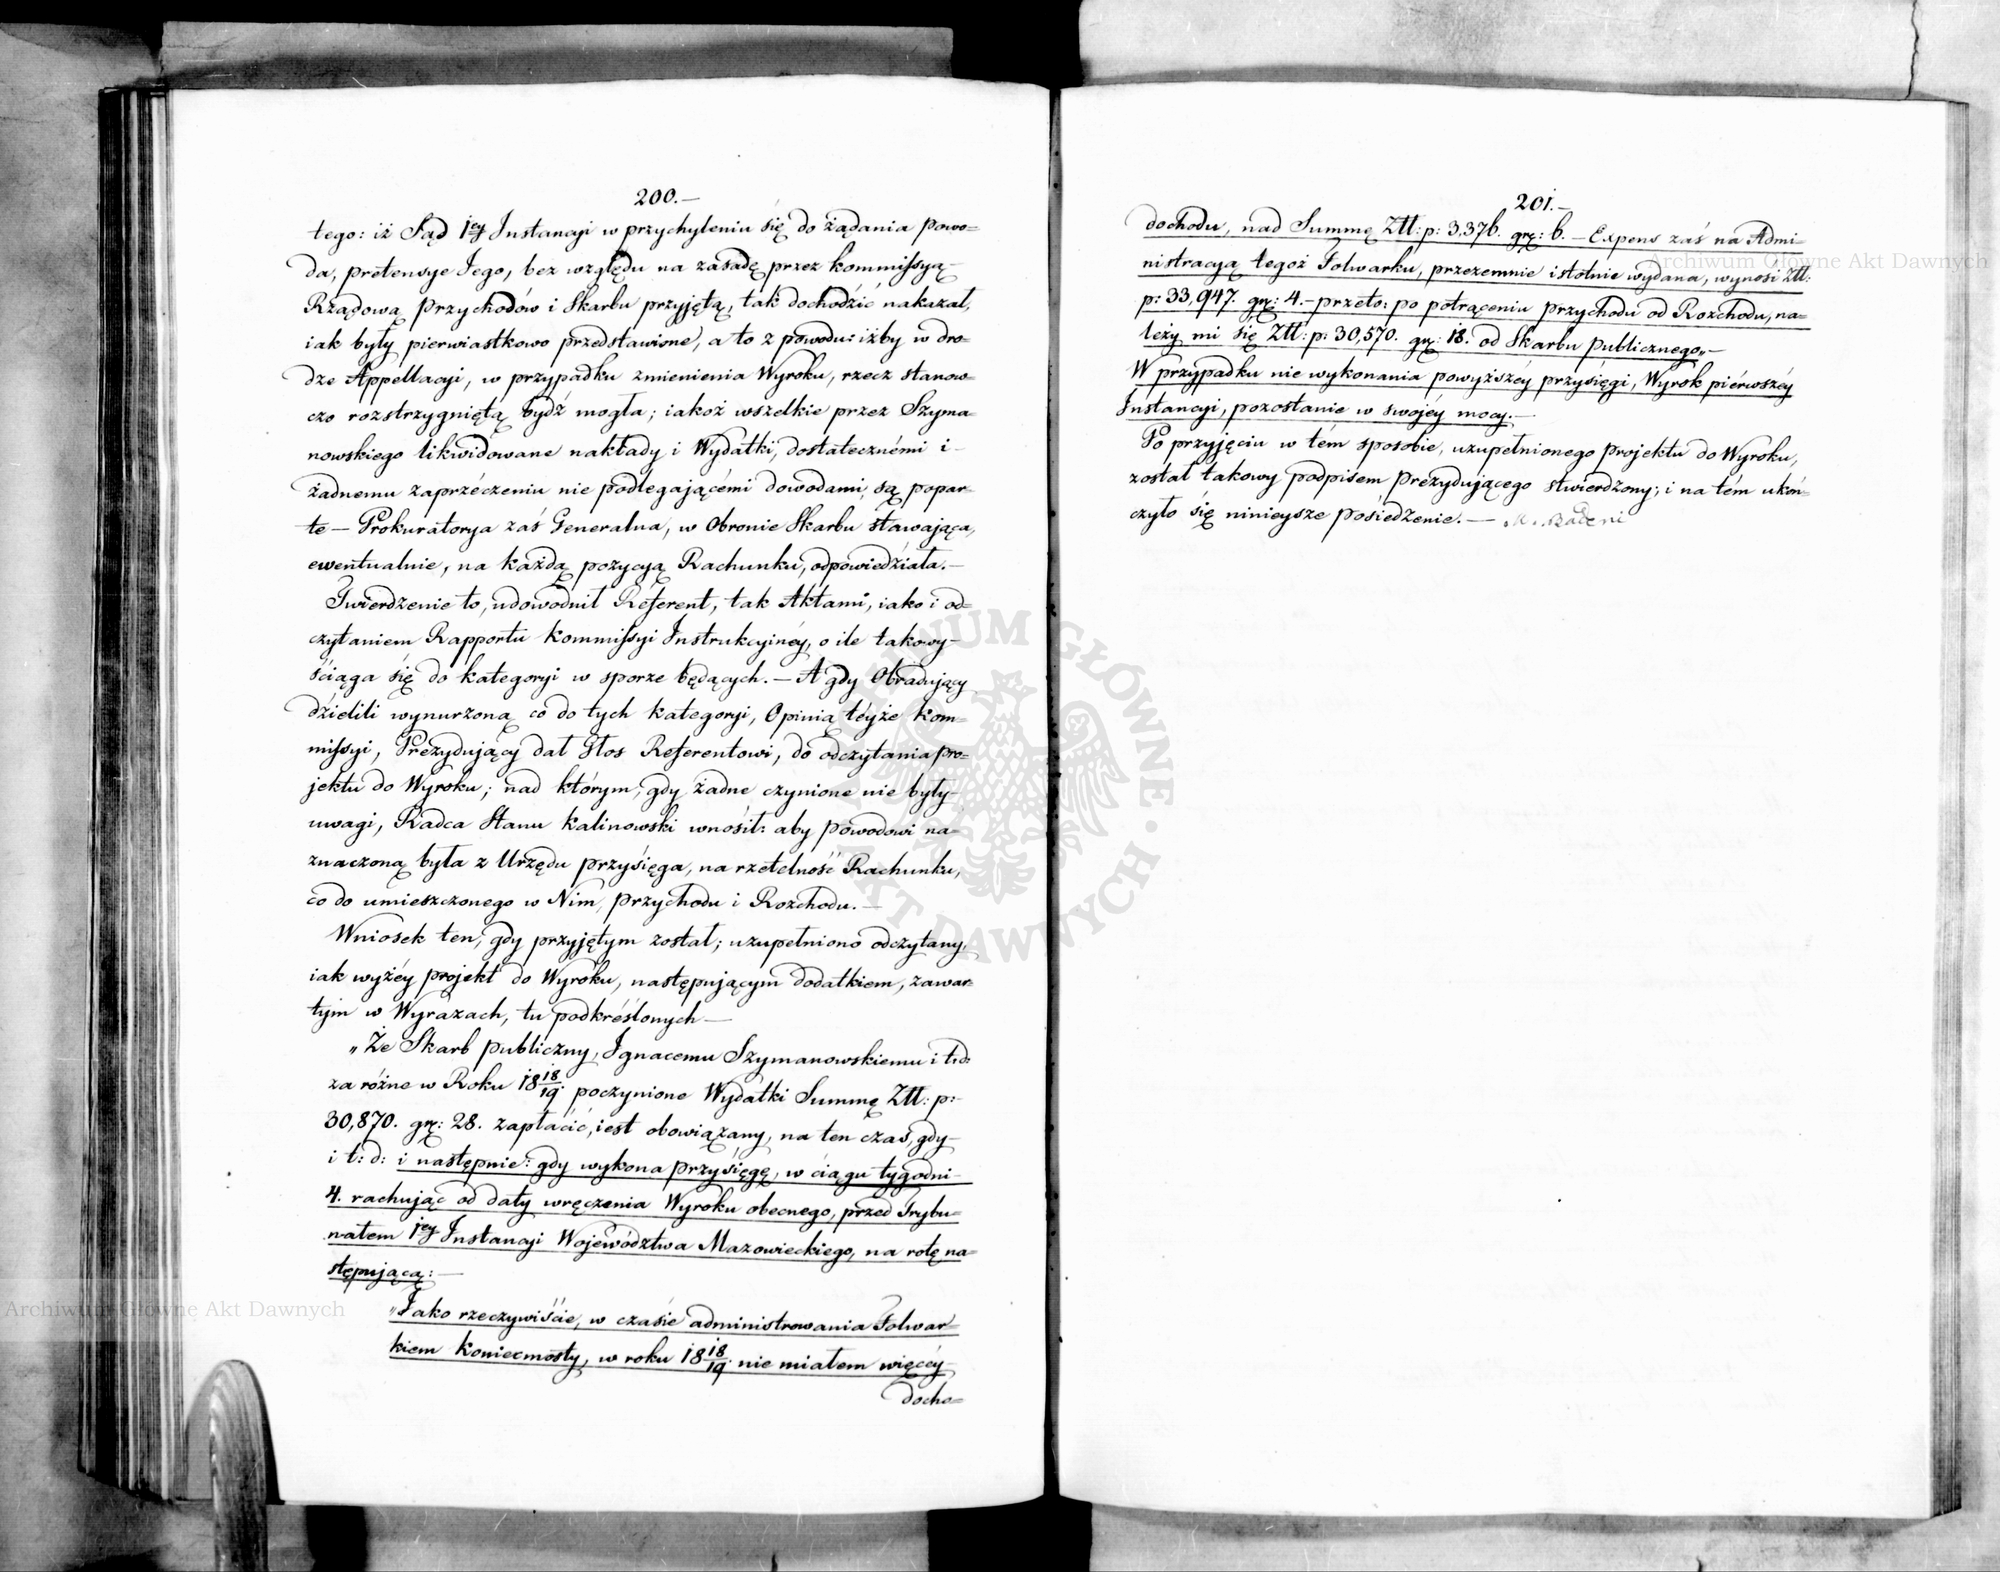 200.—
tego: iż Sąd 1ey Instancyi w przychyleniu się do żądania Powo=
da, pretensye Jego, bez względu na zasadę przez Kommissyą
Rządową Przychodów i Skarbu przyjętą, tak dochodzić nakazał,
iak były pierwiastkowo przedstawione, a to z powodu: iżby w dro=
dze Appellacyi, w przypadku zmienienia Wyroku, rzecz stanow=
czo rozstrzygniętą bydź mogła; iakoż wszelkie przez Szyma=
nowskiego likwidowane nakłady i Wydatki, dostatecznémi i
żadnemu zaprzéczeniu nie podlegającémi dowodami, są popar=
te — Prokuratorya zaś Generalna, w Obronie Skarbu stawająca,
ewentualnie, na każdą pozycyą Rachunku, odpowiedziała.—
Twierdzenie to, udowodnił Referent, tak Aktami, iako i od=
czytaniem Rapportu Kommissyi Instrukcyinéy, o ile takowy
ściąga się do kategoryi w sporze będących.— A gdy Obradujący
dzielili wynurzoną co do tych kategoryi, Opinią téyże Kom=
missyi, Prezydujący dał Głos Referentowi, do odczytania pro=
jektu do Wyroku; nad którym, gdy żadne czynione nie były
uwagi, Radca Stanu Kalinowski wnosił: aby powodowi na=
znaczoną była z Urzędu przysięga, na rzetelność Rachunku,
co do umieszczonego w Nim, Przychodu i Rozchodu.—
Wniosek ten, gdy przyjętym został; uzupełniono odczytany,
iak wyżéy projekt do Wyroku, następującym dodatkiem, zawar=
tym w Wyrazach, tu podkréślonych—
„Że Skarb publiczny, Ignacemu Szymanowskiemu i t.d:
za różne w Roku 18 18/19. poczynione Wydatki Summę Ztł: p:
30,870. gr: 28. zapłacić, iest obowiązany, na ten czas, gdy
i t: d: i następnie: gdy wykona przysięgę, w ciągu tygodni
4. rachując od daty wręczenia Wyroku obecnego, przed Trybu=
nałem 1ey Instancyi Województwa Mazowieckiego, na rotę na=
stępującą:—
„Jako rzeczywiście, w czasie administrowania Folwar=
kiem Koniecmosty, w roku 18 18/19. nie miałem więcéy
docho=
201.—
dochodu, nad Summę Ztł: p: 3,376. gr: 6.— Expens zaś na Admi=
nistracyą tegoż Folwarku, przezemnie istotnie wydana, wynosi Ztł:
p: 33,947. gr: 4.— przeto: po potrąceniu przychodu od Rozchodu, na=
leży mi się Ztł: p: 30,570. gr: 18. od Skarbu Publicznego„—
W przypadku nie wykonania powyższéy przysięgi, Wyrok piérwszéy
Instancyi, pozostanie w swojéy mocy.—
Po przyjęciu w tém sposobie, uzupełnionego Projektu do Wyroku,
został takowy podpisem Prezydującego stwierdzony; i na tém ukoń=
czyło się ninieysze posiedzenie.— M. Badeni
ARCHIWUM GŁÓWNE AKT DAWNYCH
Archiwum Główne Akt Dawnych
Archiwum Główne Akt Dawnych